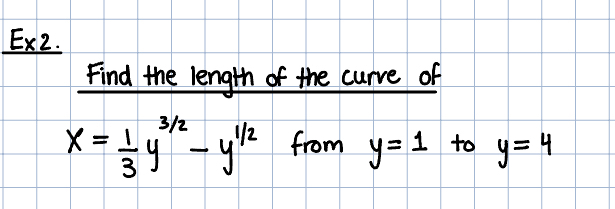 Ex 2.
Find the length of the curve of
x = 1/3 y^3/2 - y^1/2 from y = 1 to y = 4